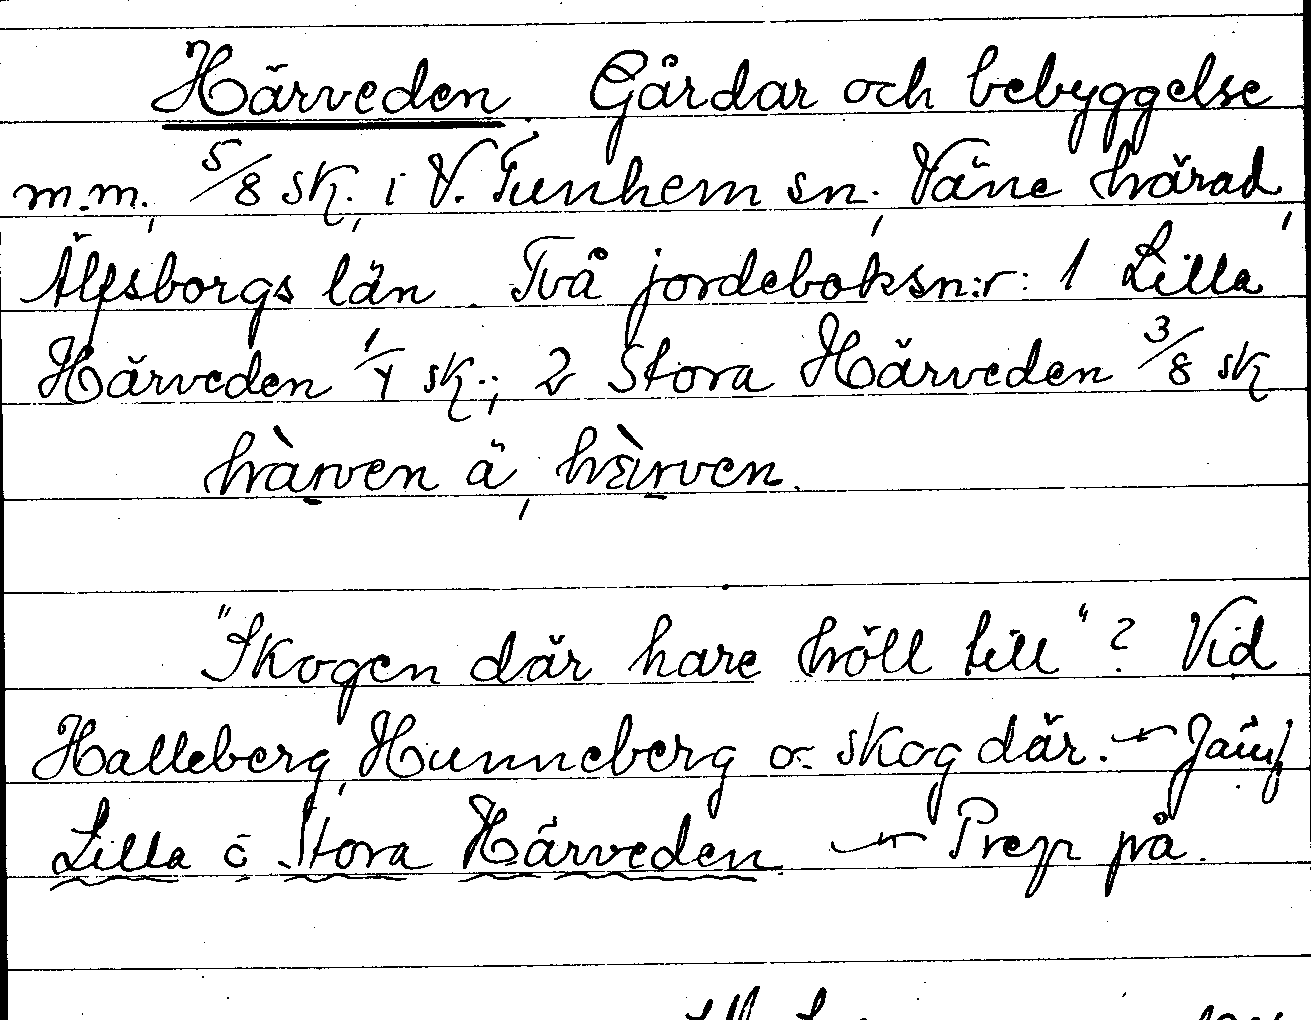 Härveden. Gårdar och bebyggelse
m.m., 5/8 sk., i V. Tunhem sn., Väne härad,
Älfsborgs län. Två jordeboksn:r: 1 Lilla
Härveden 1/4 sk.; 2 Stora Härveden 3/8 sk
hàrven ä, hɛ̀rven.
"Skogen där hare höll till"? Vid
Halleberg, Hunneberg o. skog där. — Jämf
Lilla o Stora Härveden — Prep på.